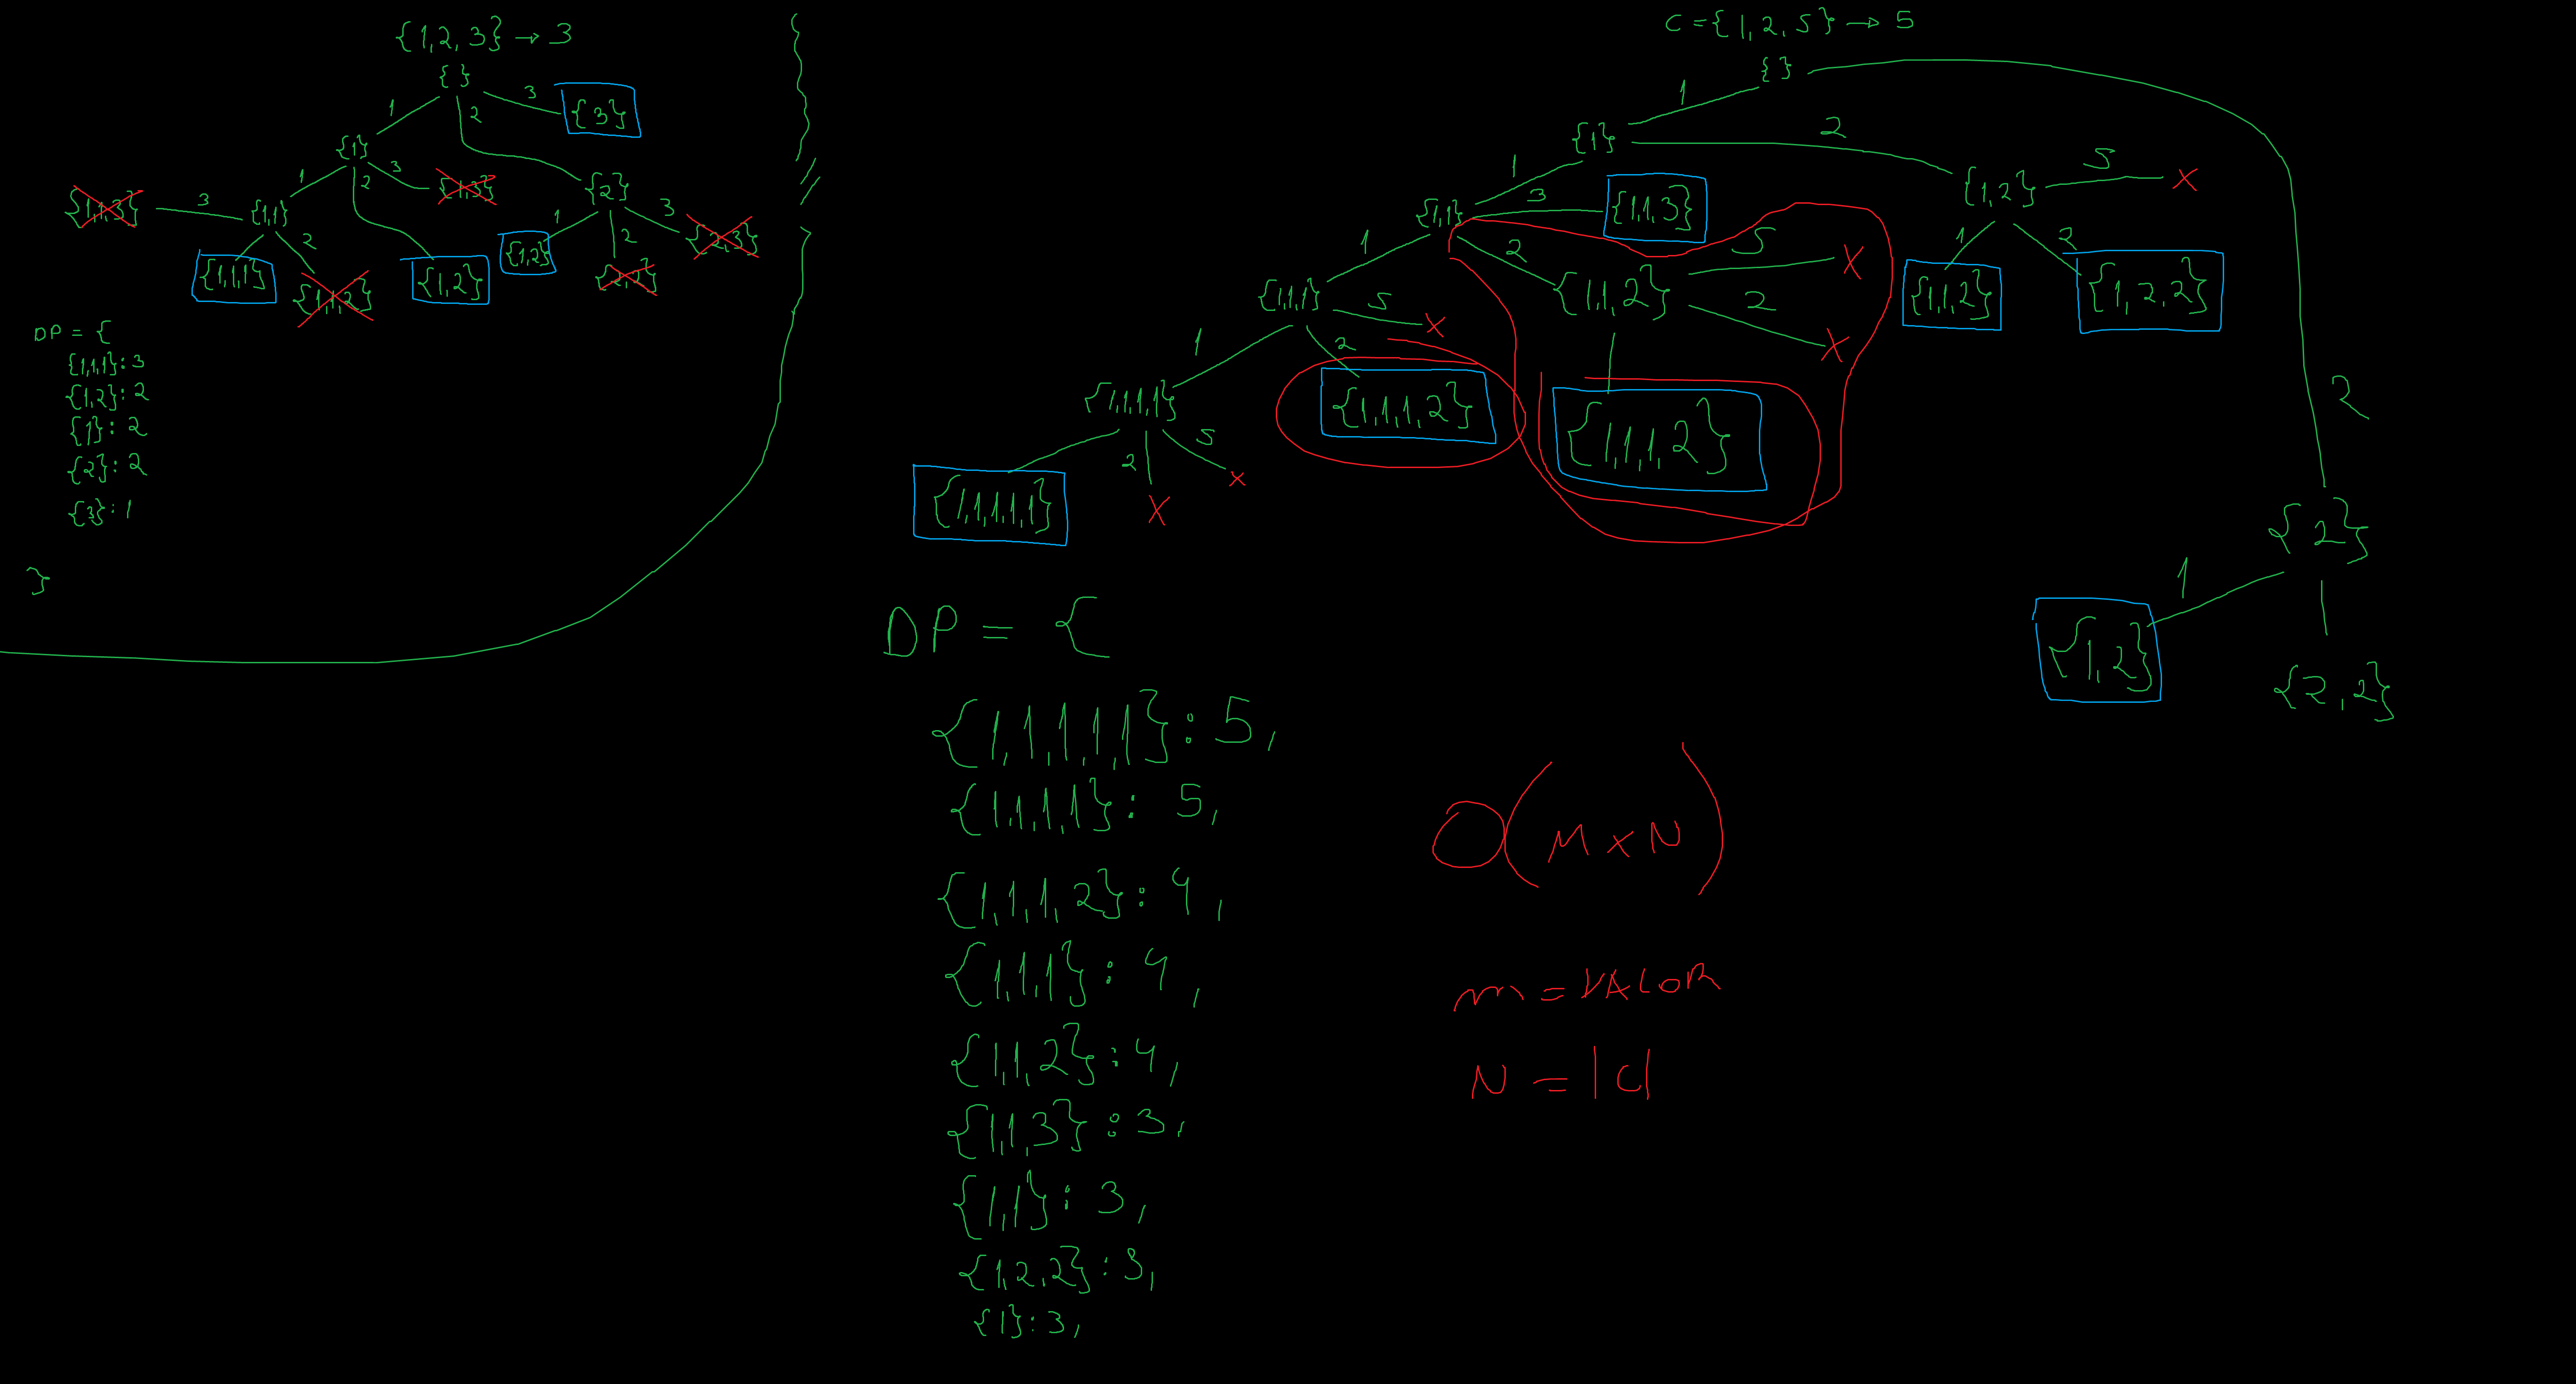 {1,2,3} → 3
{ }
1
2
3
{3}
{1}
1
2
3
{1,3}
{2}
1
2
3
{2,3}
{1,1,3}
3
{1,1}
2
{1,1,1}
{1,1,2}
{1,2}
{1,2}
{2,2}
DP = {
{1,1,1}: 3
{1,2}: 2
{1}: 2
{2}: 2
{3}: 1
}
C = {1,2,5} → 5
{ }
1
2
{1}
1
2
{1,1}
3
{1,1,3}
{1,2}
5
x
1
2
{1,1,2}
{1,2,2}
1
2
{1,1,2}
5
x
2
x
{1,1,1}
5
x
1
2
{1,1,1,2}
{1,1,1,2}
{1,1,1,1}
2
5
x
x
{1,1,1,1,1}
{2}
1
{1,2}
{2,2}
DP = {
{1,1,1,1,1}: 5,
{1,1,1,1}: 5,
{1,1,1,2}: 4,
{1,1,1}: 4,
{1,1,2}: 4,
{1,1,3}: 3,
{1,1}: 3,
{1,2,2}: 3,
{1}: 3,
O(M x N)
m = VALOR
N = |C|